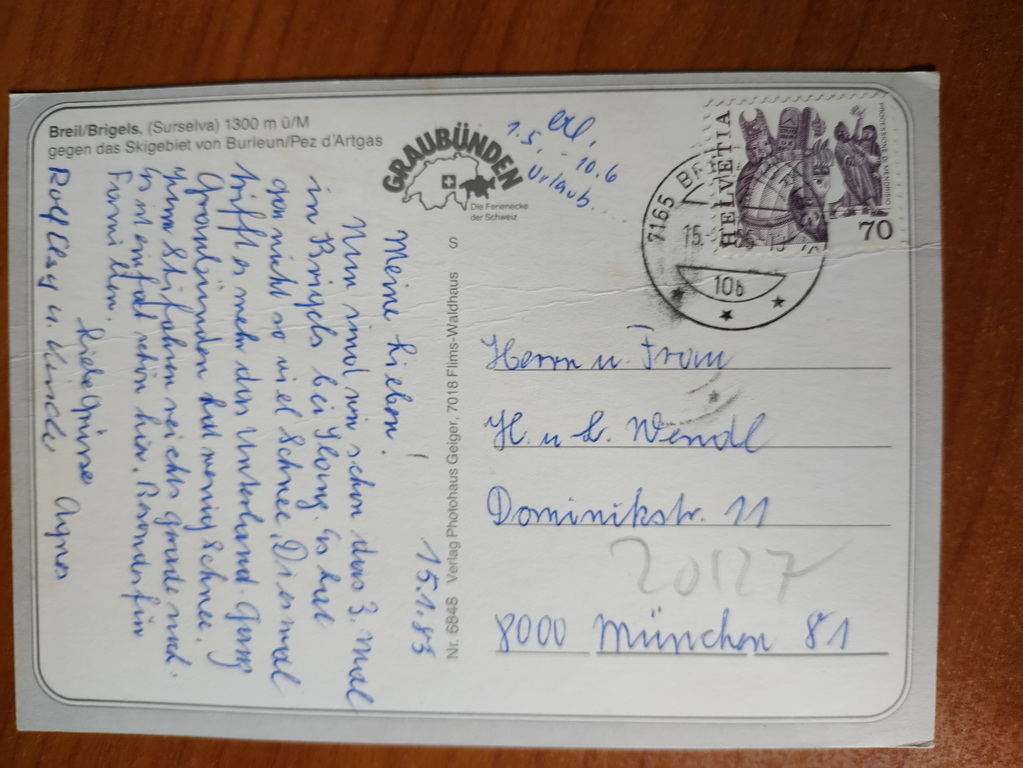 Breil/Brigels, (Surselva) 1300 m ü/M
gegen das Skigebiet von Burleun/Pez d'Artgas
GRAUBÜNDEN
Die Ferienecke
der Schweiz
erl.
1.5. - 10.6
Urlaub.
HELVETIA
70
7165 BR
15.
10b
15.1.85
Meine Lieben!
Nun sind wir schon das 3. Mal
in Brigels bei Ilong. Es hat
gar nicht so viel Schnee. Diesmal
trifft es mehr das Unterland. Ganz
Graubünden hat wenig Schnee.
zum Skifahren reichts gerade noch.
Es ist einfach schön hier. Besonders für
Familien.
Liebe Grüsse Agnes
Rolf u. Kinder
Nr. 6848 Verlag Photohaus Geiger, 7018 Flims-Waldhaus S
Herrn u. Frau
H. u. L. Wendl
Dominikstr. 11
20127
8000 München 81